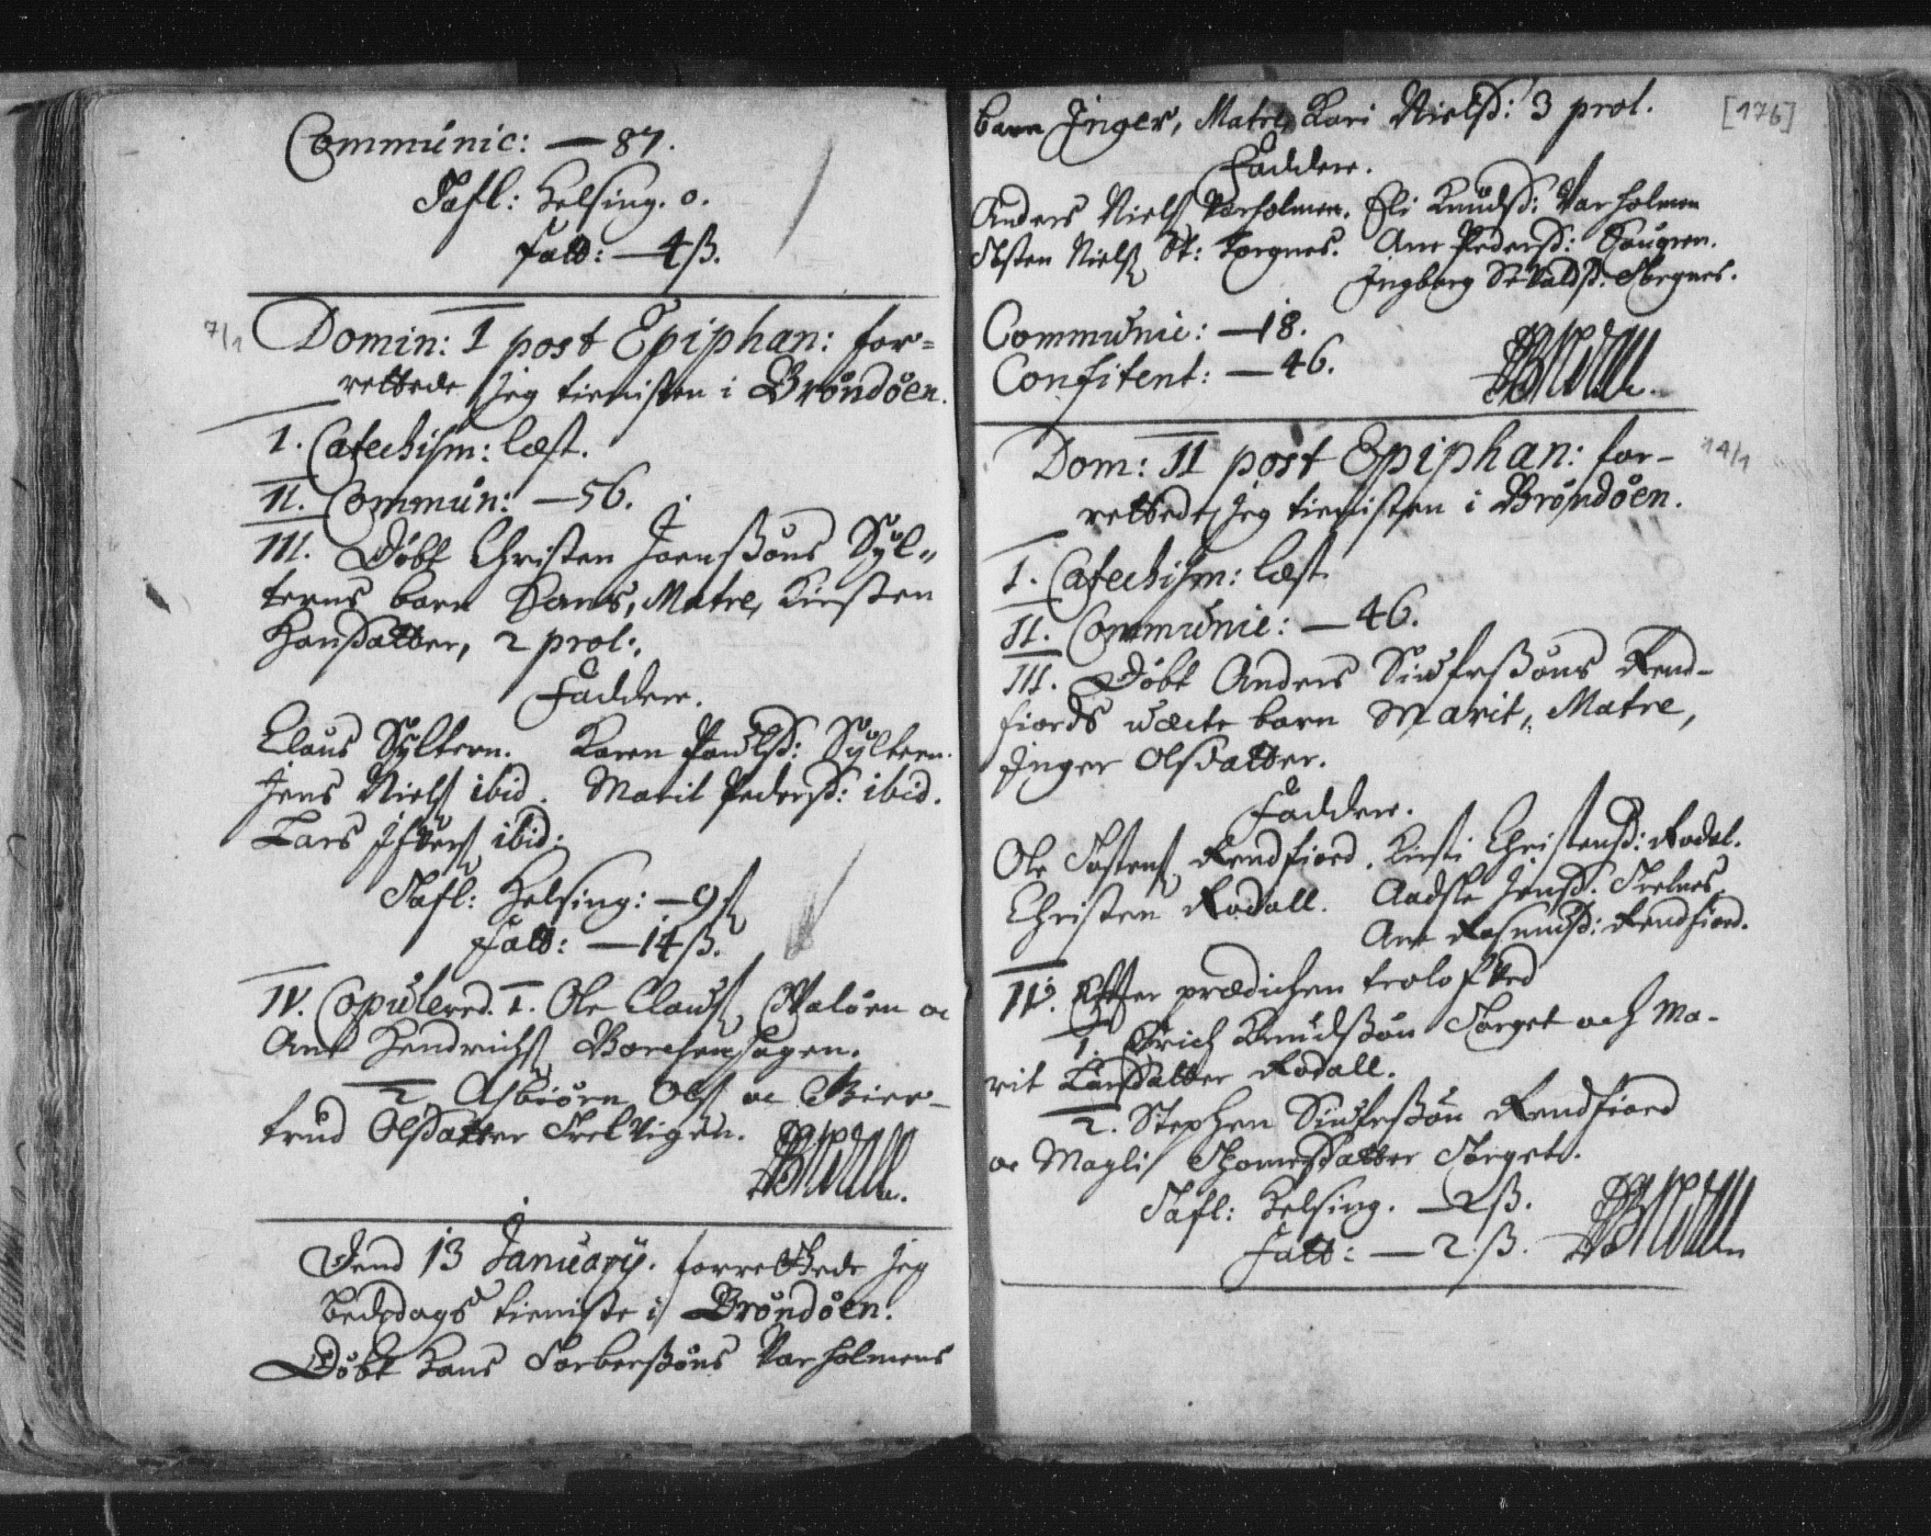 Communic: — 87.
Tafl: Helsing. 0.
Fatt: — 4 ß.
7/1
Domin: I post Epiphan: for=
rettede Jeg tienisten i Brøndøen.
I. Catechism: læst.
II. Commun: — 56.
III. Døbt Christen Joensøns Syl=
terns barn Hans, Matre, Kirsten
Hansdatter, 2 prol:.
Faddere.
Claus Syltern. Karen Paulsd: Syltern.
Jens Niels ibid. Marit Pedersd: ibid.
Lars Ifvers ibid:
Tafl: Helsing: — 9 ß
Fatt: — 14 ß.
IV. Copulered. 1. Ole Claus Waløen oc
Ane Hendrichs Borchenhagen.
2 Asbiørn Ols oc Gier-
trud Olsdatter Trelvigen.
Dend 13 January. forrettede Jeg
bededags tieniste i Brøndøen.
Døbt Hans Torbersøns Varholmens
[176]
barn Inger, Matre, Kari Nielsd: 3 prol.
Faddere.
Anders Niels Varholmen. Eli Knudsd: Varholmen
Tosten Niels St: Torgnes. Ane Pedersd: Haugen.
Ingborg Sevaldsd: Torgnes.
Communic: — 18.
Confitent: — 46.
14/1
Dom: II post Epiphan: for-
rettede Jeg tienisten i Brøndøen.
I. Catechism: læst.
II. Communic: — 46.
III. Døbt Anders Siufrsøns Rend-
fiords uæcte barn Marit, Matre,
Inger Olsdatter.
Faddere.
Ole Tostens Rendfiord. Kirsti Christensd: Rodal.
Christen Rodall. Aadste Jensd. Trelnes.
Ane Rasmusd: Rendfiord.
IV. Efter prædichen trolofved
1. Erich Knudsøn Torget och Ma-
rit Larsdatter Rodall.
2. Stephen Siufrsøn Rendfiord
oc Magli Thomesdatter Torget.
Tafl: Helsing. — 2 ß.
Fatt: — 2 ß.